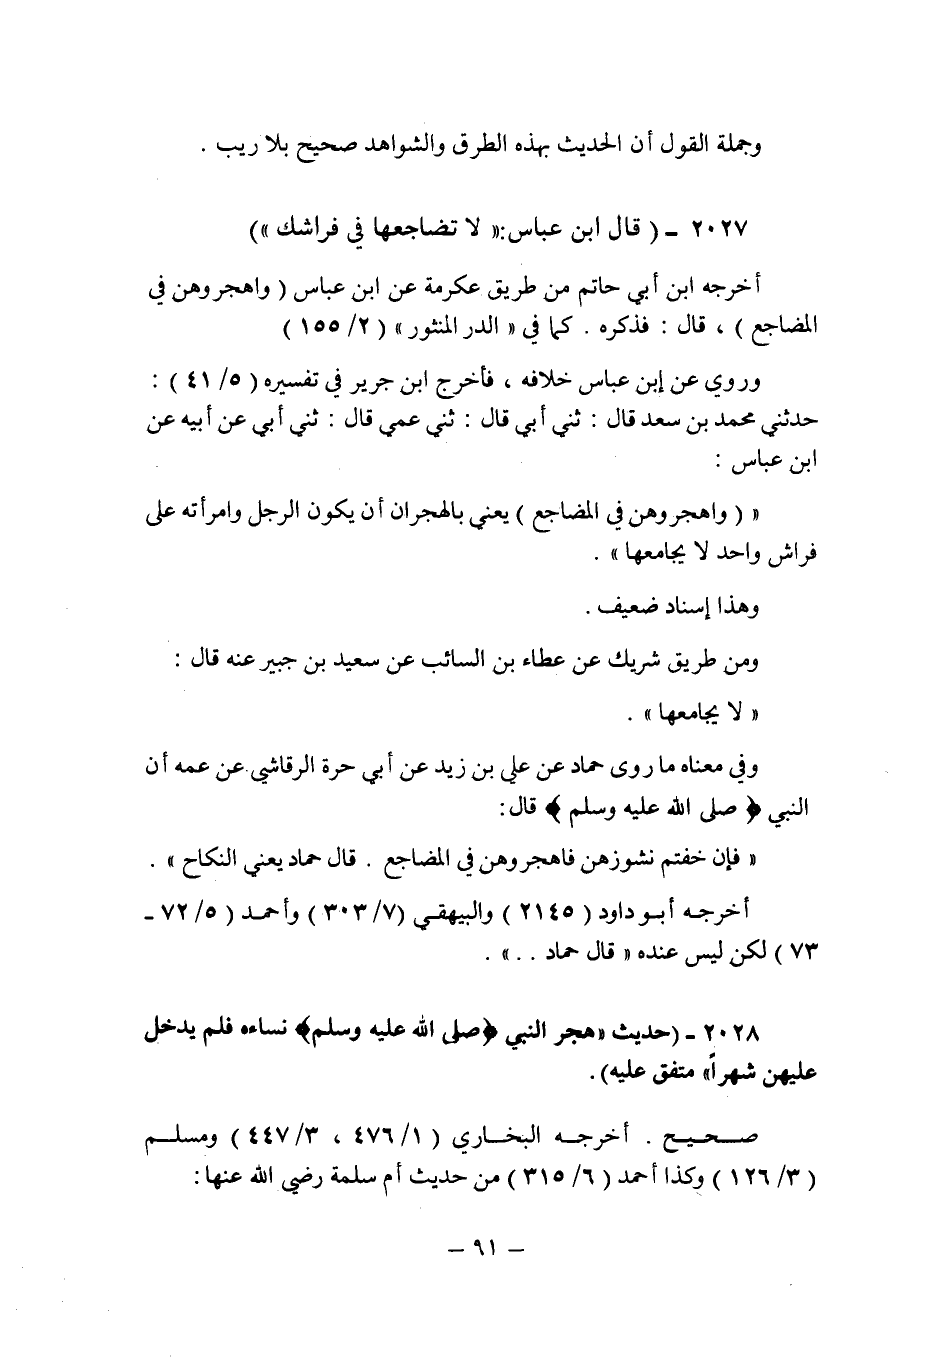 وجملة القول أن الحديث بهذه الطرق والشواهد صحيح بلا ريب .
٢٠٢٧ ـ ( قال ابن عباس :« لا تضاجعها في فراشك »)
أخرجه ابن أبي حاتم من طريق عكرمة عن ابن عباس ( واهجروهن في
المضاجع ) ، قال : فذكره . كما في « الدر المنثور » ( ٢/ ١٥٥ )
وروي عن إبن عباس خلافه ، فأخرج ابن جرير في تفسيره ( ٥/ ٤١ ) :
حدثني محمد بن سعد قال : ثني أبي قال : ثني عمي قال : ثني أبي عن أبيه عن
ابن عباس :
« ( واهجروهن في المضاجع ) يعني بالهجران أن يكون الرجل وامرأته على
فراش واحد لا يجامعها » .
وهذا إسناد ضعيف .
ومن طريق شريك عن عطاء بن السائب عن سعيد بن جبير عنه قال :
« لا يجامعها » .
وفي معناه ما روى حماد عن علي بن زيد عن أبي حرة الرقاشي عن عمه أن
النبي ﴿ صلى الله عليه وسلم ﴾ قال :
« فإن خفتم نشوزهن فاهجروهن في المضاجع . قال حماد يعني النكاح » .
أخرجه أبو داود ( ٢١٤٥ ) والبيهقي (٧/ ٣٠٣ ) وأحمد ( ٥/ ٧٢ ـ
٧٣ ) لكن ليس عنده « قال حماد . . » .
٢٠٢٨ ـ (حديث «هجر النبي ﴿صلى الله عليه وسلم﴾ نساءه فلم يدخل
عليهن شهراً» متفق عليه).
صحيح . أخرجه البخاري ( ١/ ٤٧٦ ، ٣/ ٤٤٧ ) ومسلم
( ٣/ ١٢٦ ) وكذا أحمد ( ٦/ ٣١٥ ) من حديث أم سلمة رضي الله عنها :
– ٩١ –